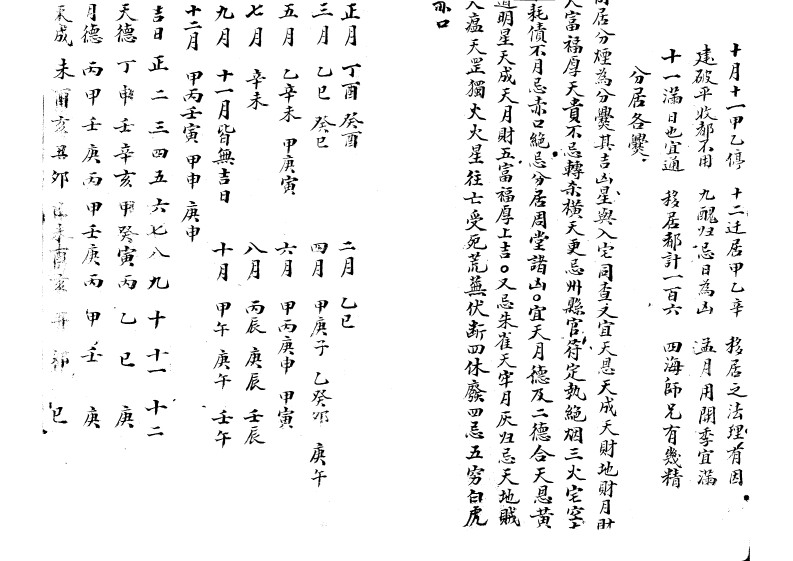 十月十一甲乙停 十二迁居甲乙辛 移居之法理有因
建破平收都不用 九醜归忌日為凶 孟月用開季宜滿
十一滿日也宜通 移居都計一百六 四海師兄有幾精
分居各爨
同居分煙為分爨其吉凶星與入宅同查又宜天恩天成天財地財月財
天富福厚天貴不忌轉杀橫天更忌州縣官符定执絕烟三火宅空
耗債不月忌赤口絕忌分居周堂諸凶○宜天月德及二德合天恩黄
道明星天成天月財五富福厚上吉○又忌朱雀天牢月灰归忌天地賊
人瘟天罡獨火火星往亡受死荒蕪伏断四休廢四忌五穷白虎
赤口
正月 丁酉 癸酉 二月 乙巳
三月 乙巳 癸巳 四月 甲庚子 乙癸卯 庚午
五月 乙辛未 甲庚寅 六月 甲丙庚申 甲寅
七月 辛未 八月 丙辰 庚辰 壬辰
九月 十一月皆無吉日 十月 甲午 庚午 壬午
十二月 甲丙壬寅 甲申 庚申
吉日 正 二 三 四 五 六 七 八 九 十 十一 十二
天德 丁 申 壬 辛 亥 甲 癸 寅 丙 乙 巳 庚
月德 丙 甲 壬 庚 丙 甲 壬 庚 丙 甲 壬 庚
天成 未 酉 亥 丑 卯 巳 未 酉 亥 丑 卯 巳